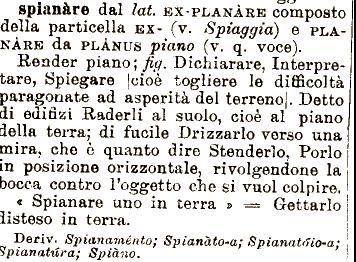 spianàre dal lat. EX-PLANÀRE composto
della particella EX- (v. Spiaggia) e PLA-
NÀRE da PLÀNUS piano (v. q. voce).
Render piano; fig. Dichiarare, Interpre-
tare, Spiegare |cioè togliere le difficoltà
paragonate ad asperità del terreno|. Detto
di edifizi Raderli al suolo, cioè al piano
della terra; di fucile Drizzarlo verso una
mira, che è quanto dire Stenderlo, Porlo
in posizione orizzontale, rivolgendone la
bocca contro l'oggetto che si vuol colpire.
« Spianare uno in terra » = Gettarlo
disteso in terra.
Deriv. Spianaménto; Spianàto-a; Spianatóio-a;
Spianatúra; Spiàno.